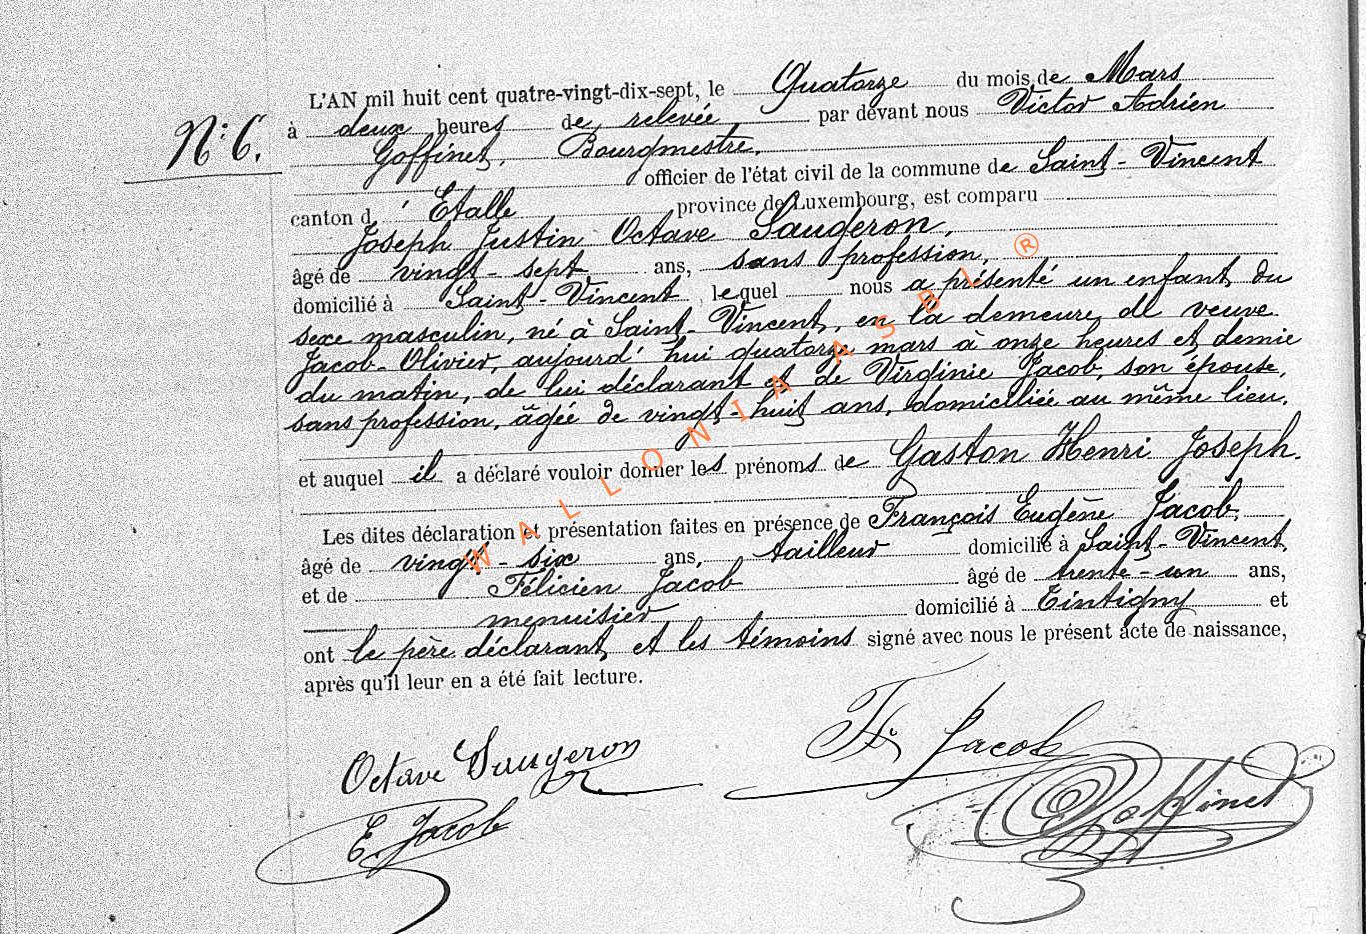 L'AN mil huit cent quatre-vingt-dix-sept, le Quatorze du mois de Mars
N° 6. à deux heures de relevée par devant nous Victor Adrien
Goffinet, Bourgmestre,
officier de l'état civil de la commune de Saint-Vincent
canton d' Etalle province de Luxembourg, est comparu
Joseph Justin Octave Saugeron,
âgé de vingt-sept ans, sans profession,
domicilié à Saint-Vincent, lequel nous a présenté un enfant du
sexe masculin, né à Saint-Vincent, en la demeure de veuve
Jacob-Olivier, aujourd'hui quatorze mars à onze heures et demie
du matin, de lui déclarant et de Virginie Jacob, son épouse,
sans profession, âgée de vingt-huit ans, domiciliée au même lieu,
et auquel il a déclaré vouloir donner les prénoms de Gaston Henri Joseph.
Les dites déclaration et présentation faites en présence de François Eugène Jacob,
âgé de vingt-six ans, tailleur domicilié à Saint-Vincent,
et de Félicien Jacob âgé de trente-un ans,
menuisier domicilié à Tintigny et
ont le père déclarant et les témoins signé avec nous le présent acte de naissance,
après qu'il leur en a été fait lecture.
Octave Saugeron
Jacob
E. Jacob
Goffinet
WALLONIA ASBL ®